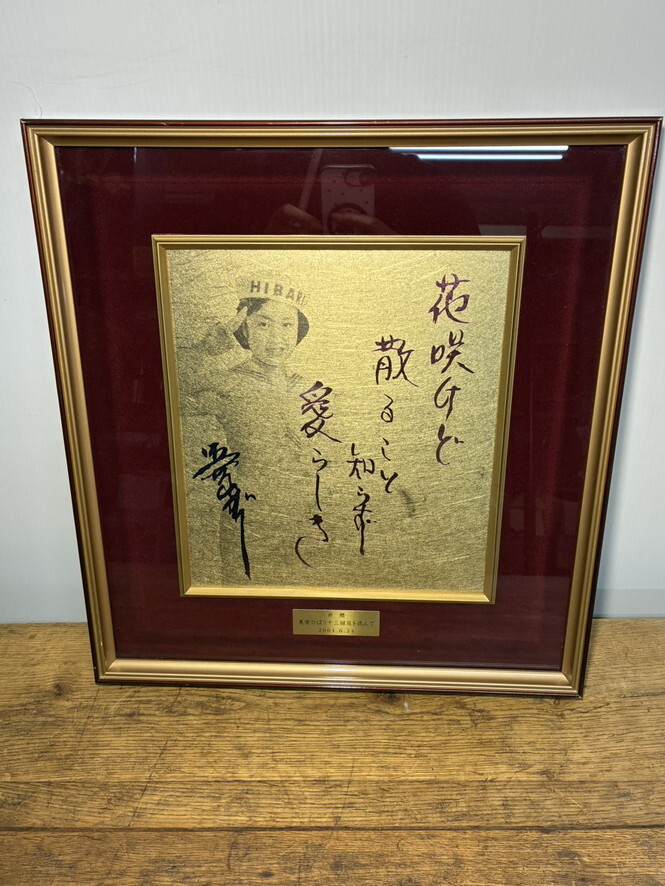 HIBARI
花咲けど
散ること
知らず
愛らしき
美空ひばり十三回忌を偲んで
2001.6.24